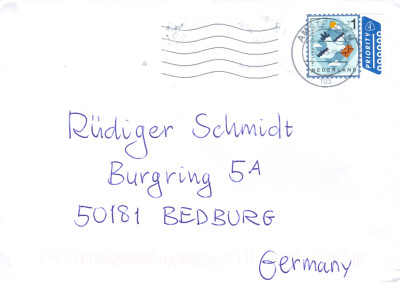 1
NEDERLAND
PRIORITY
Rüdiger Schmidt
Burgring 5A
50181 BEDBURG
Germany